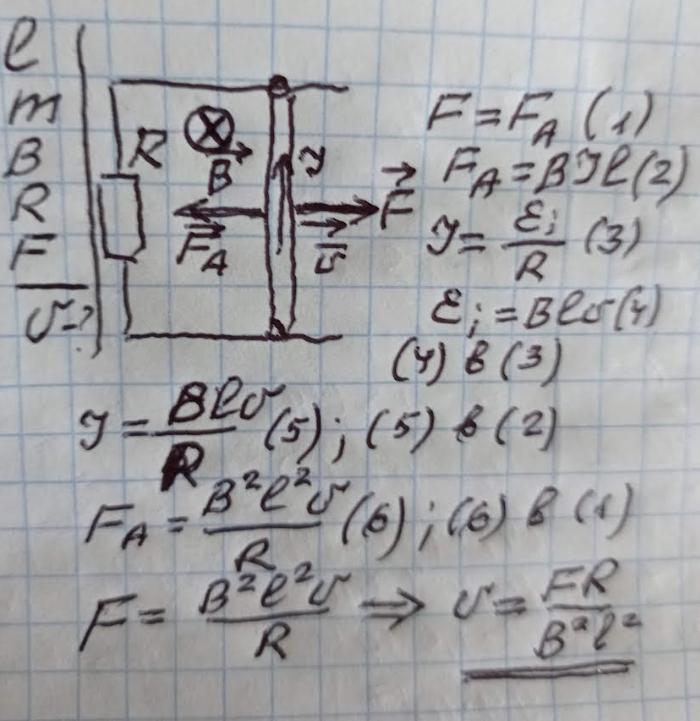 l
m
B
R
F
υ-?
R
B⃗
I
F⃗_A
υ⃗
F⃗
F = F_A (1)
F_A = BIl (2)
I = ℰ_i / R (3)
ℰ_i = Blυ (4)
(4) в (3)
I = Blυ / R (5); (5) в (2)
F_A = B²l²υ / R (6); (6) в (1)
F = B²l²υ / R ⇒ υ = FR / B²l²